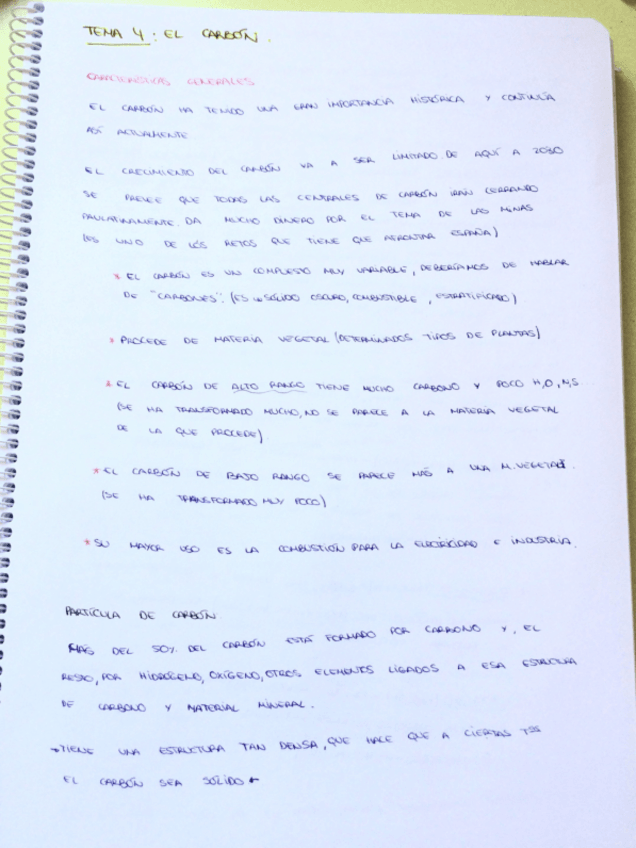 TEMA 4: EL CARBÓN.
CARACTERÍSTICAS GENERALES
EL CARBÓN HA TENIDO UNA GRAN IMPORTANCIA HISTÓRICA Y CONTINÚA
ASÍ ACTUALMENTE
EL CRECIMIENTO DEL CARBÓN VA A SER LIMITADO DE AQUÍ A 2030
SE PREVEE QUE TODAS LAS CENTRALES DE CARBÓN IRÁN CERRANDO
PAULATINAMENTE. DA MUCHO DINERO POR EL TEMA DE LAS MINAS
(ES UNO DE LOS RETOS QUE TIENE QUE AFRONTAR ESPAÑA)
* EL CARBÓN ES UN COMPUESTO MUY VARIABLE, DEBERÍAMOS DE HABLAR
DE "CARBONES". (ES SÓLIDO OSCURO, COMBUSTIBLE, ESTRATIFICADO)
* PROCEDE DE MATERIA VEGETAL (DETERMINADOS TIPOS DE PLANTAS)
* EL CARBÓN DE ALTO RANGO TIENE MUCHO CARBONO Y POCO H,O,N,S
(SE HA TRANSFORMADO MUCHO, NO SE PARECE A LA MATERIA VEGETAL
DE LA QUE PROCEDE)
* EL CARBÓN DE BAJO RANGO SE PARECE MÁS A UNA M. VEGETAL.
(SE HA TRANSFORMADO MUY POCO)
* SU MAYOR USO ES LA COMBUSTIÓN PARA LA ELECTRICIDAD E INDUSTRIA.
PARTÍCULA DE CARBÓN
MÁS DEL 50% DEL CARBÓN ESTÁ FORMADO POR CARBONO Y, EL
RESTO, POR HIDRÓGENO, OXÍGENO, OTROS ELEMENTOS LIGADOS A ESA ESTRUCTURA
DE CARBONO Y MATERIAL MINERAL.
→ TIENE UNA ESTRUCTURA TAN DENSA, QUE HACE QUE A CIERTAS Tªs
EL CARBÓN SEA SÓLIDO ←